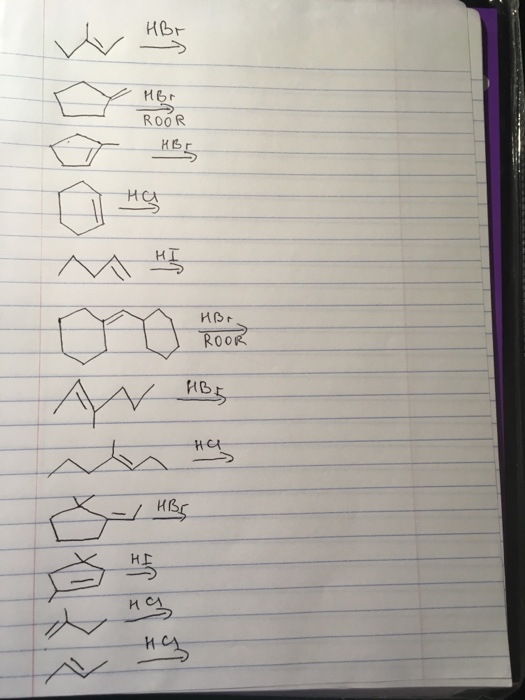 HBr
HBr
ROOR
HBr
HCl
HI
HBr
ROOR
HBr
HCl
HBr
HI
HCl
HCl